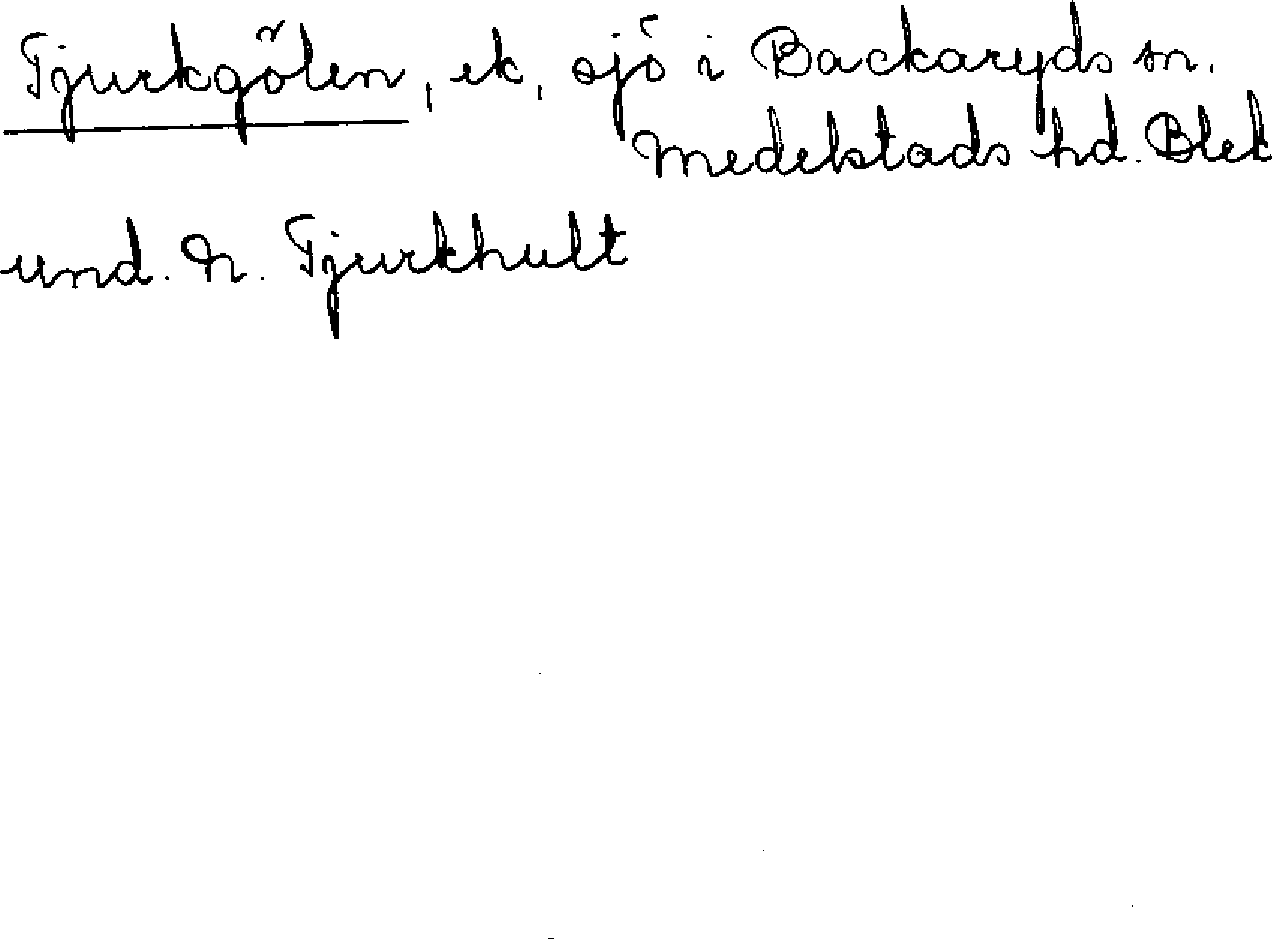 Tjurkgölen, ek, sjö i Backaryds sn.
Medelstads hd. Blek
und. N. Tjurkhult